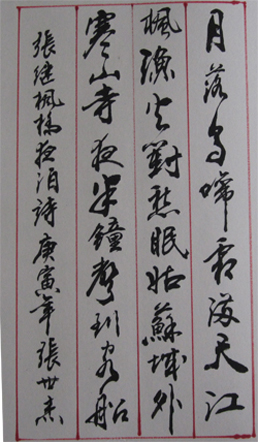 月落烏啼霜滿天江
楓漁火對愁眠姑蘇城外
寒山寺夜半鐘聲到客船
張继楓橋夜泊詩庚寅年張世杰